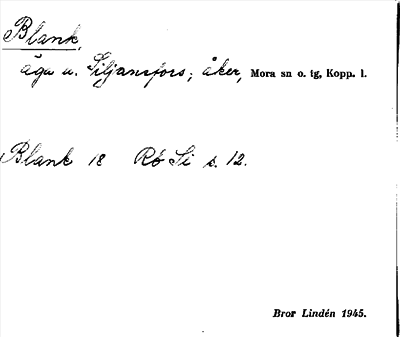 Blank,
äga u. Siljansfors; åker, Mora sn o. tg, Kopp. l.
Blank 18 Rö Si s. 12.
Bror Lindén 1945.